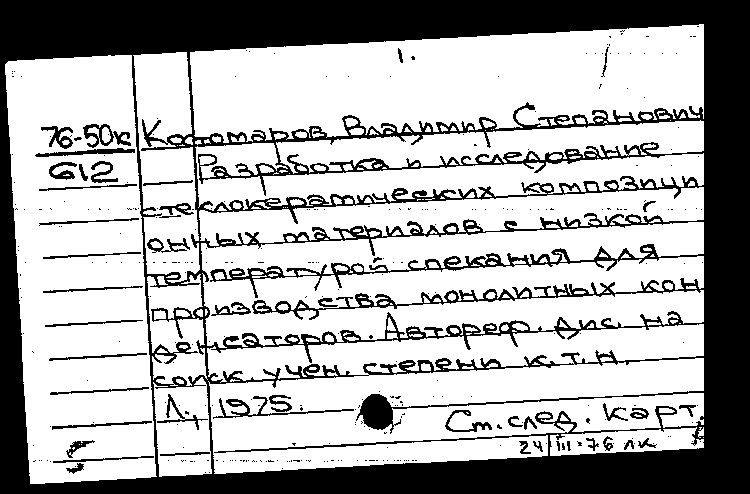 1.
76-50к Костомаров, Владимир Степанович
612 Разработка и исследование
стеклокерамических композици
онных материалов с низкой
температурой спекания для
производства монолитных кон
денсаторов. Автореф. дис. на
соиск. учен. степени к.т.н.
Л., 1975.
Ст. след. карт.
24/III-76 лк